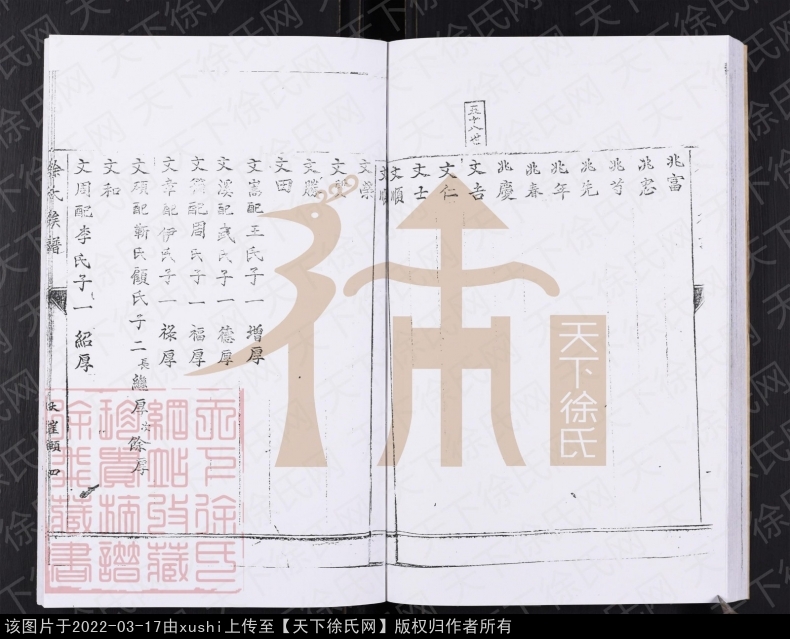 兆富
兆忠
兆芎
兆先
兆年
兆春
兆慶
五十八世
文吉
文仁
文士
文順
文榮
文勝
文田
文富配王氏子一 增厚
文溪配武氏子一 德厚
配周氏子一 福厚
文章配伊氏子一 祿厚
文碩配靳氏顧氏子二 長繼厚 次餘厚
文和
文周配李氏子一 紹厚
徐氏族譜
四
天下徐氏
天下徐氏
網站收藏
珍貴族譜
徐兆藏書
该图片于2022-03-17由xushi上传至【天下徐氏网】版权归作者所有